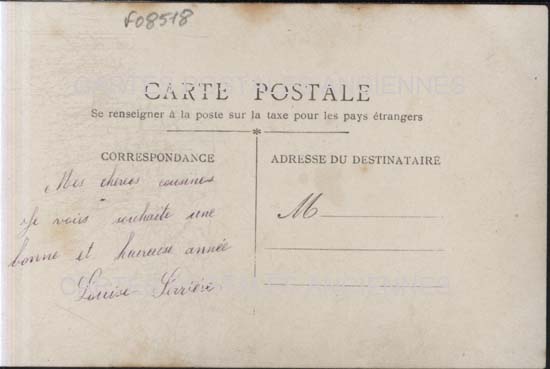 F08518
CARTES POSTALES ANCIENNES
CARTE POSTALE
Se renseigner à la poste sur la taxe pour les pays étrangers
CORRESPONDANCE
ADRESSE DU DESTINATAIRE
M
Mes chères cousines
Je vous souhaite une
bonne et heureuse année
Louise
CARTES POSTALES ANCIENNES